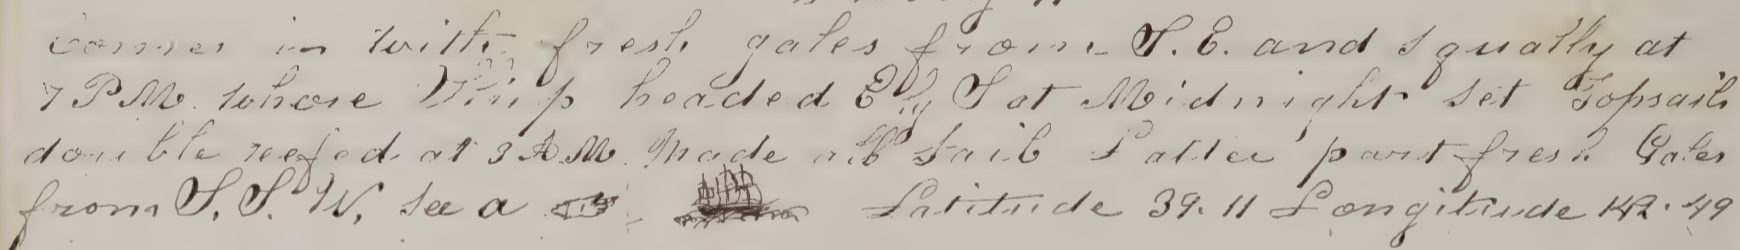 comes in with fresh gales from S.E. and squally at
7 P.M. whore Ship headed E by S at Midnight set Topsails
double reefed at 3 A.M. Made all Sail Latter part fresh Gales
from S.S.W. see a Latitude 39.11 Longitude 142.49